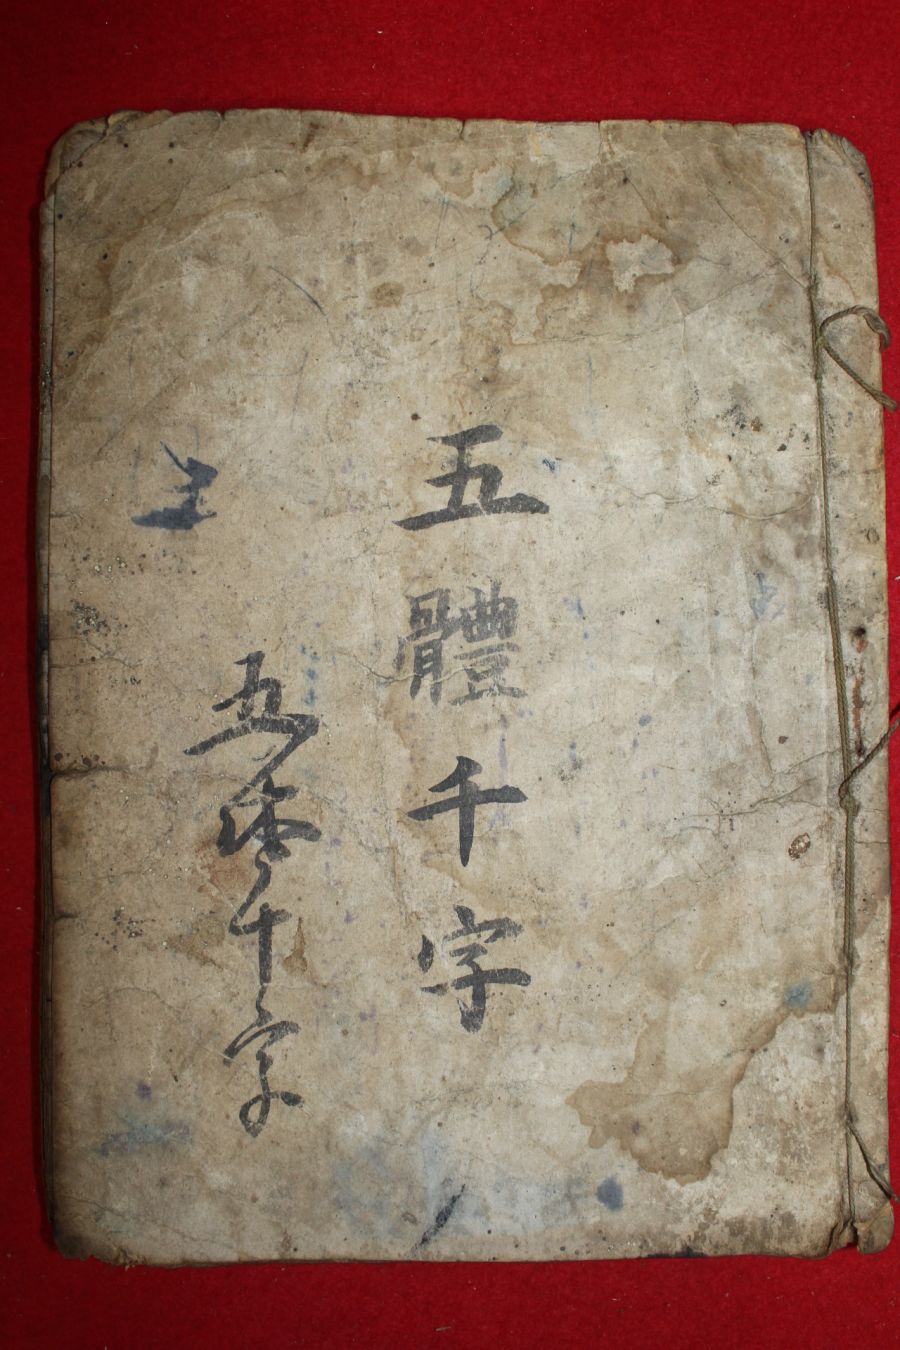 五體千字
五体千字